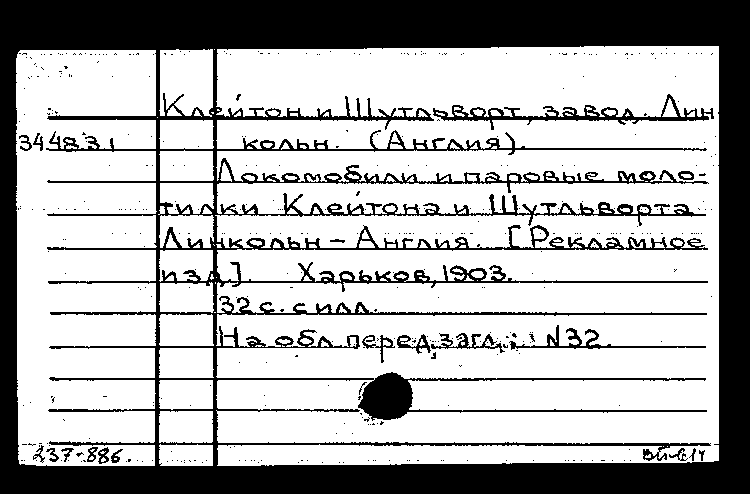 Клейтон и Шутльворт, завод. Лин-
344831 кольн. (Англия).
Локомобили и паровые моло-
тилки Клейтона и Шутльворта
Линкольн – Англия. [Рекламное
изд]. Харьков, 1903.
32 с. с илл.
На обл. перед. загл.: N32.
237-886.